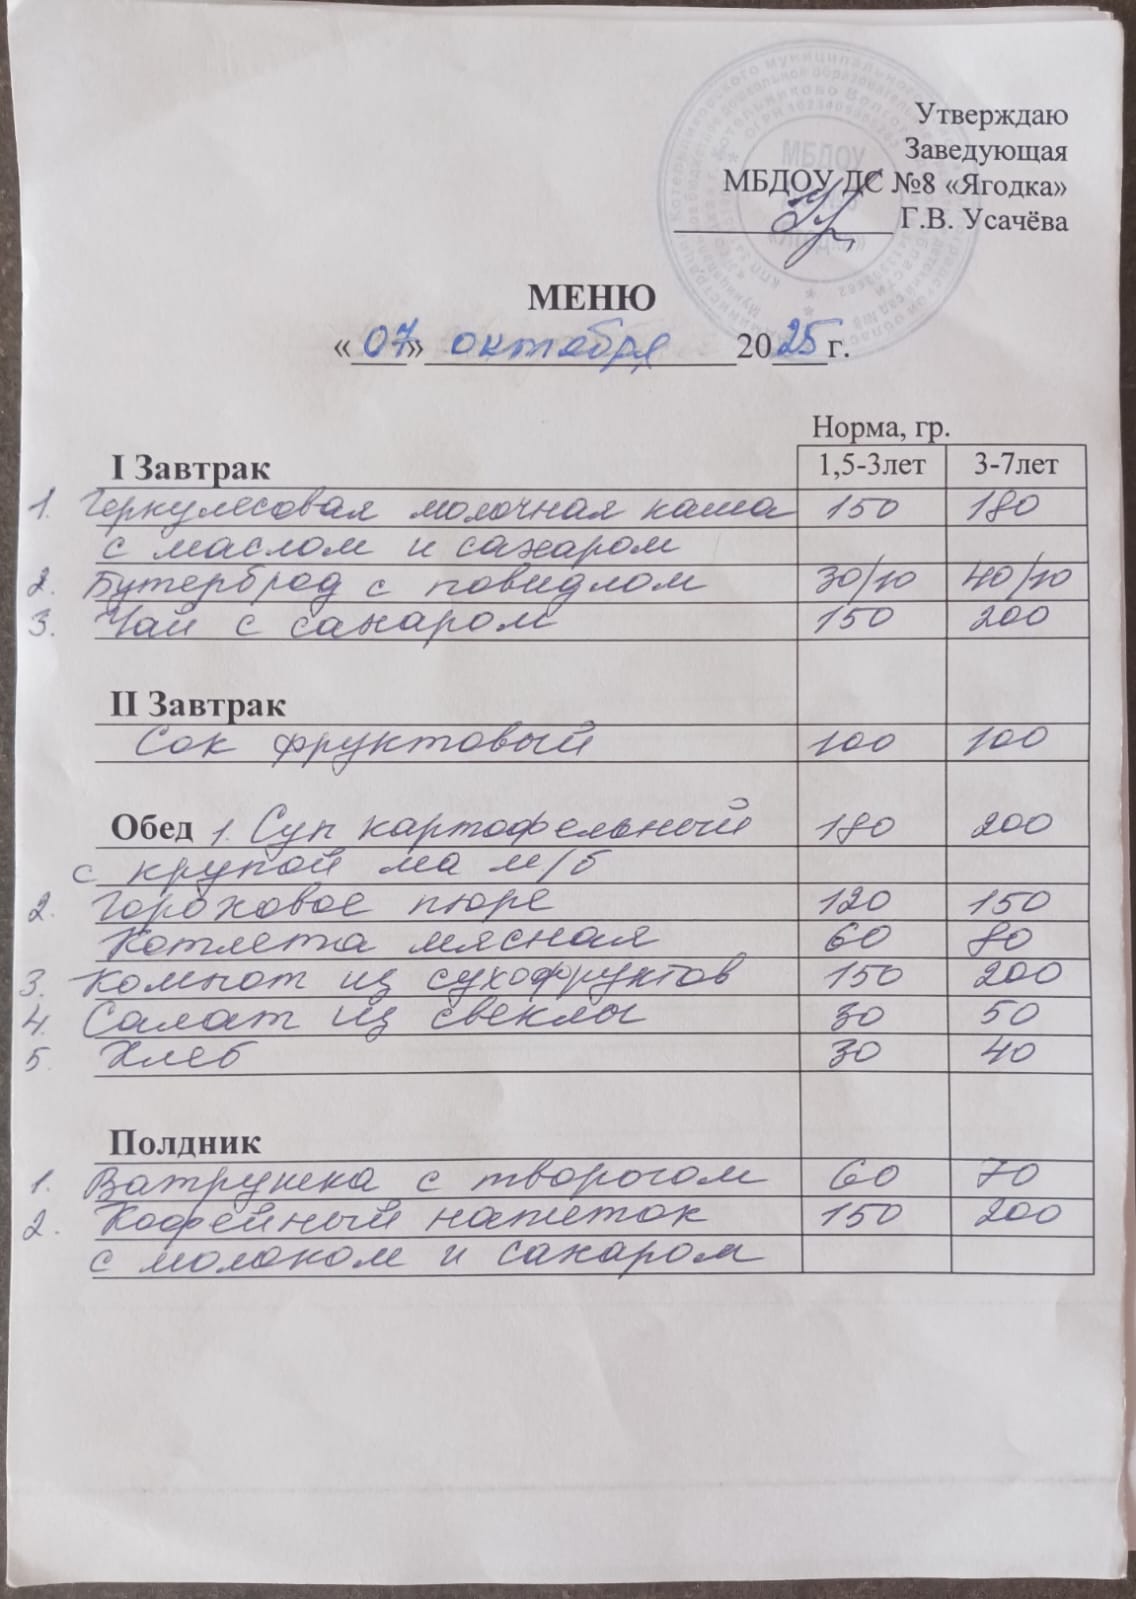 Утверждаю
Заведующая
МБДОУ ДС №8 «Ягодка»
Г.В. Усачёва
МБДОУ
МЕНЮ
«07» октября 2025 г.
Норма, гр.
I Завтрак 1,5-3лет 3-7лет
1. Геркулесовая молочная каша 150 180
с маслом и сахаром
2. Бутерброд с повидлом 30/10 40/10
3. Чай с сахаром 150 200
II Завтрак
Сок фруктовый 100 100
Обед 1. Суп картофельный 180 200
с крупой на м/б
2. Гороховое пюре 120 150
Котлета мясная 60 80
3. Компот из сухофруктов 150 200
4. Салат из свеклы 30 50
5. Хлеб 30 40
Полдник
1. Ватрушка с творогом 60 70
2. Кофейный напиток 150 200
с молоком и сахаром